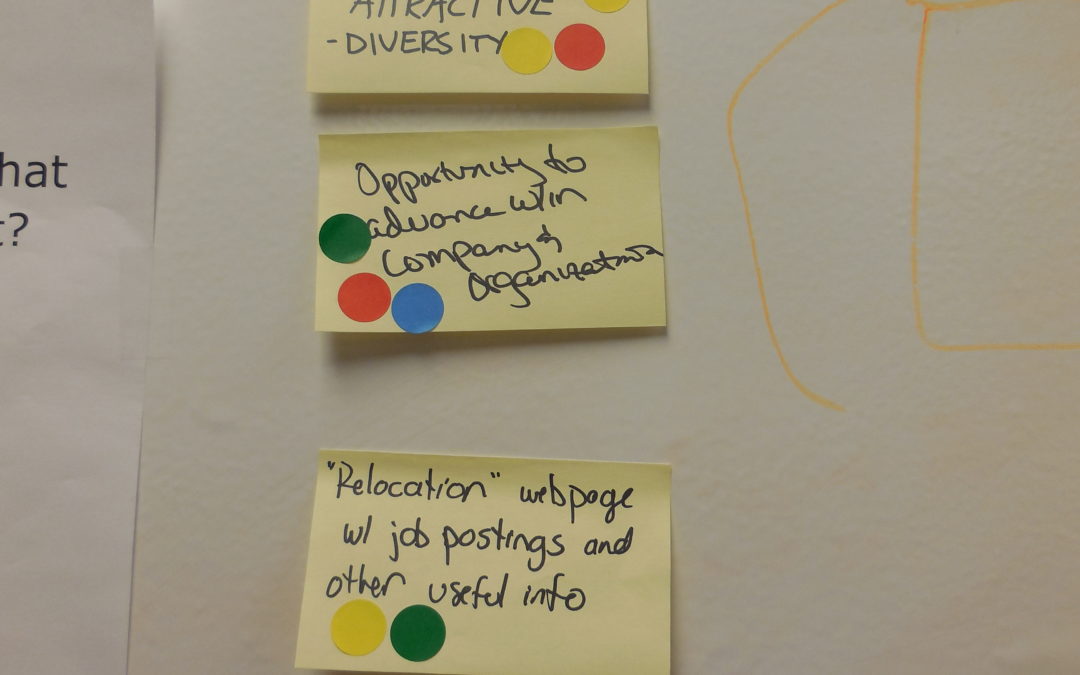 ATTRACTIVE
- DIVERSITY
hat
t?
Opportunity to
advance w/in
company &
organization
"Relocation" webpage
w/ job postings and
other useful info